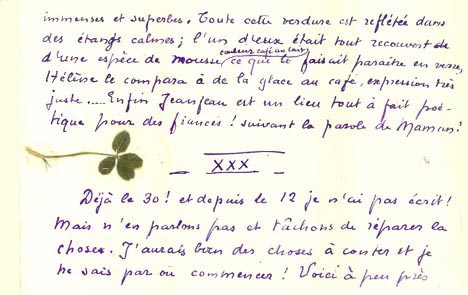 immenses et superbes. Toute cette verdure est reflétée dans
des étangs calmes ; l'un d'eux était tout recouvert de
couleur café au lait
d'une espèce de mousse, ce qui le faisait paraître en verre,
Hélène le compara à de la glace au café, expression très
juste ..... Enfin Jeanjeau est un lieu tout à fait poé-
tique pour des fiancés ! suivant la parole de Maman !
XXX
Déjà le 30 ! et depuis le 12 je n'ai pas écrit !
Mais n'en parlons pas et tâchons de réparer la
chose. J'aurais bien des choses à conter et je
ne sais par où commencer ! Voici à peu près